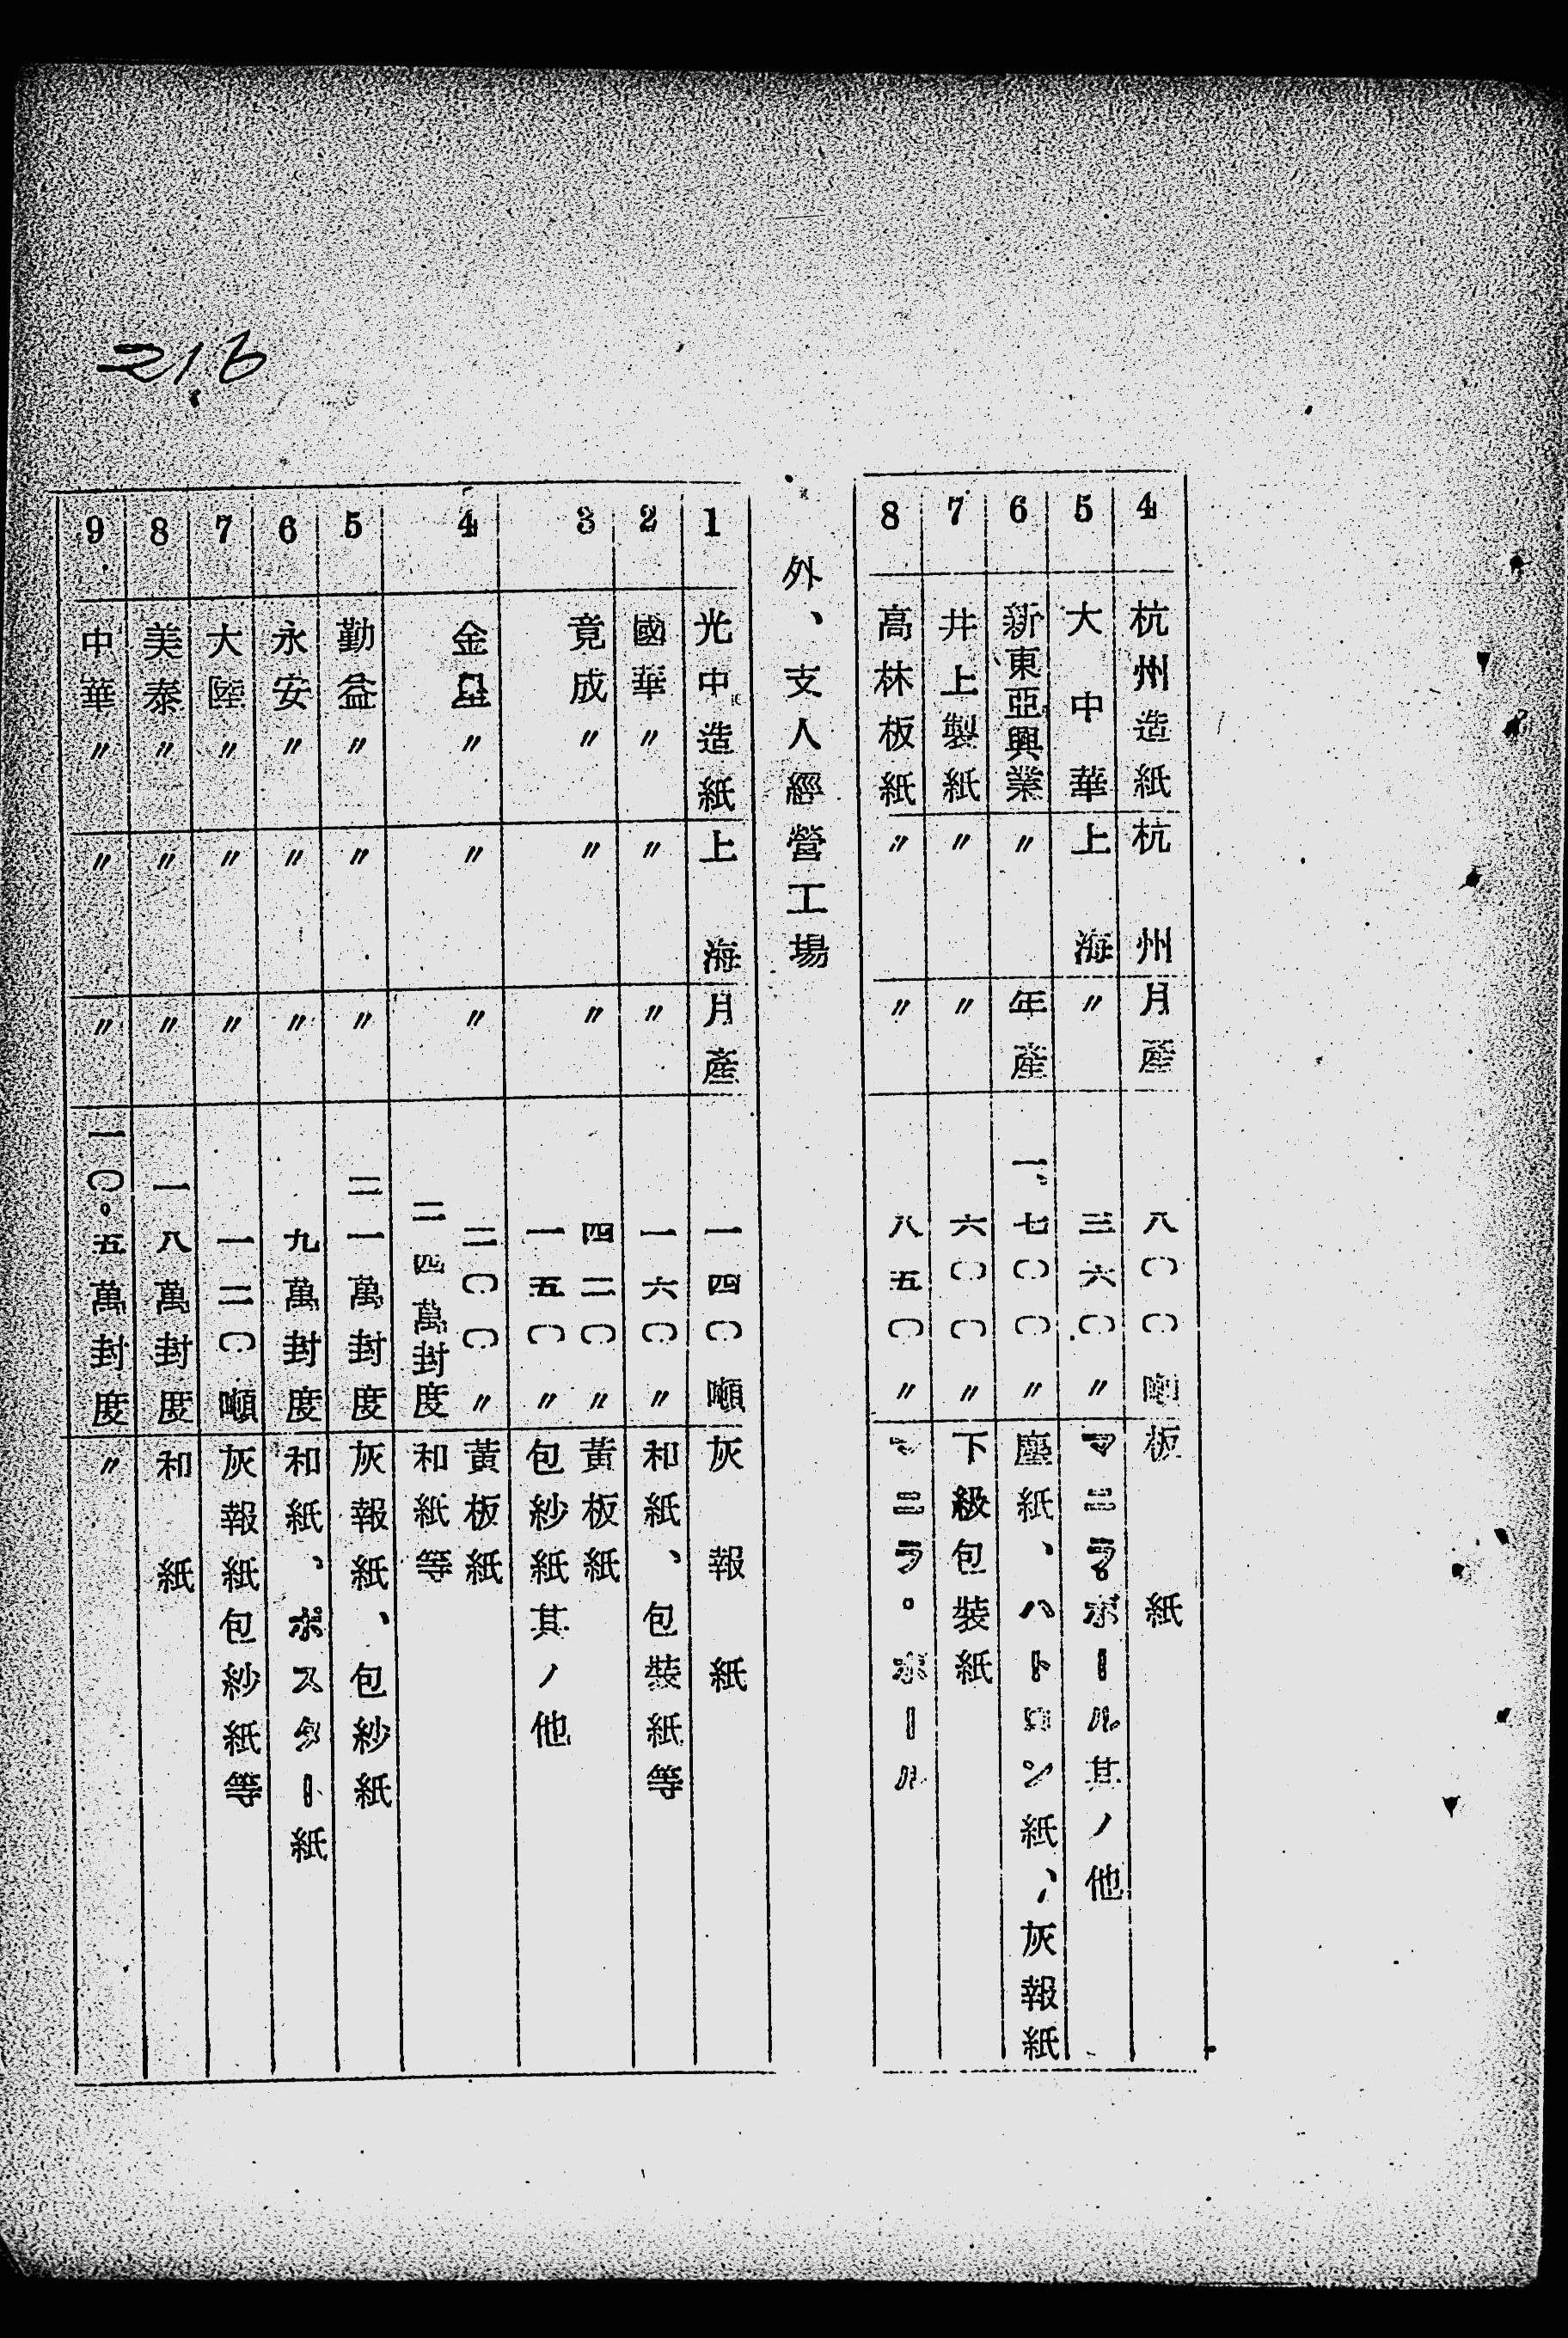 216
4 杭州造紙 杭州 月産 八〇〇噸 板紙
5 大中華 上海 〃 三六〇〃 マニラボール其ノ他
6 新東亞興業 〃 年産 一、七〇〇〃 塵紙、ハトロン紙、灰報紙
7 井上製紙 〃 〃 六〇〇〃 下級包裝紙
8 高林板紙 〃 〃 八五〇〃 マニラ・ボール
外、支人經營工場
1 光中造紙 上海 月產 一四〇噸 灰報紙
2 國華〃 〃 〃 一六〇〃 和紙、包裝紙等
3 竟成〃 〃 〃 四二〇〃 黃板紙
一五〇〃 包紗紙其ノ他
4 金星〃 〃 〃 三〇〇〃 黃板紙
二四萬封度 和紙等
5 勤益〃 〃 〃 三一萬封度 灰報紙、包紗紙
6 永安〃 〃 〃 九萬封度 和紙、ポスター紙
7 大陸〃 〃 〃 一二〇噸 灰報紙包紗紙等
8 美泰〃 〃 〃 一八萬封度 和紙
9 中華〃 〃 〃 一〇。五萬封度 〃